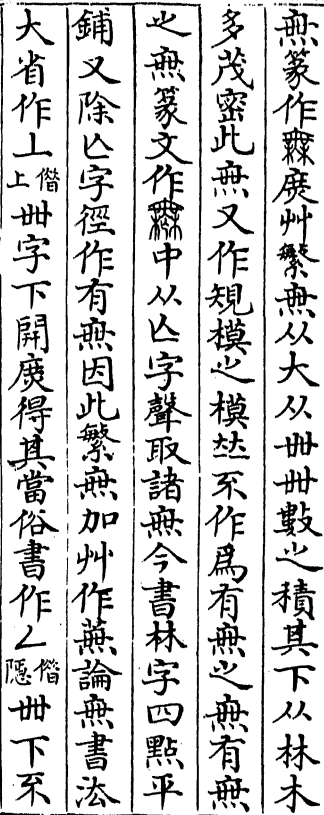 無篆作𣞤廣艸繁無从大从卌卌數之積其下从林木
多茂密此無又作規模之模𠀤不作爲有無之無有無
之無篆文作𣠮中从亾字聲取諸無今書林字四點平
鋪又除亾字徑作有無因此繁無加艸作蕪論無書法
大省作丄上偕卌字下開廣得其當俗書作𠃊隱偕卌下不